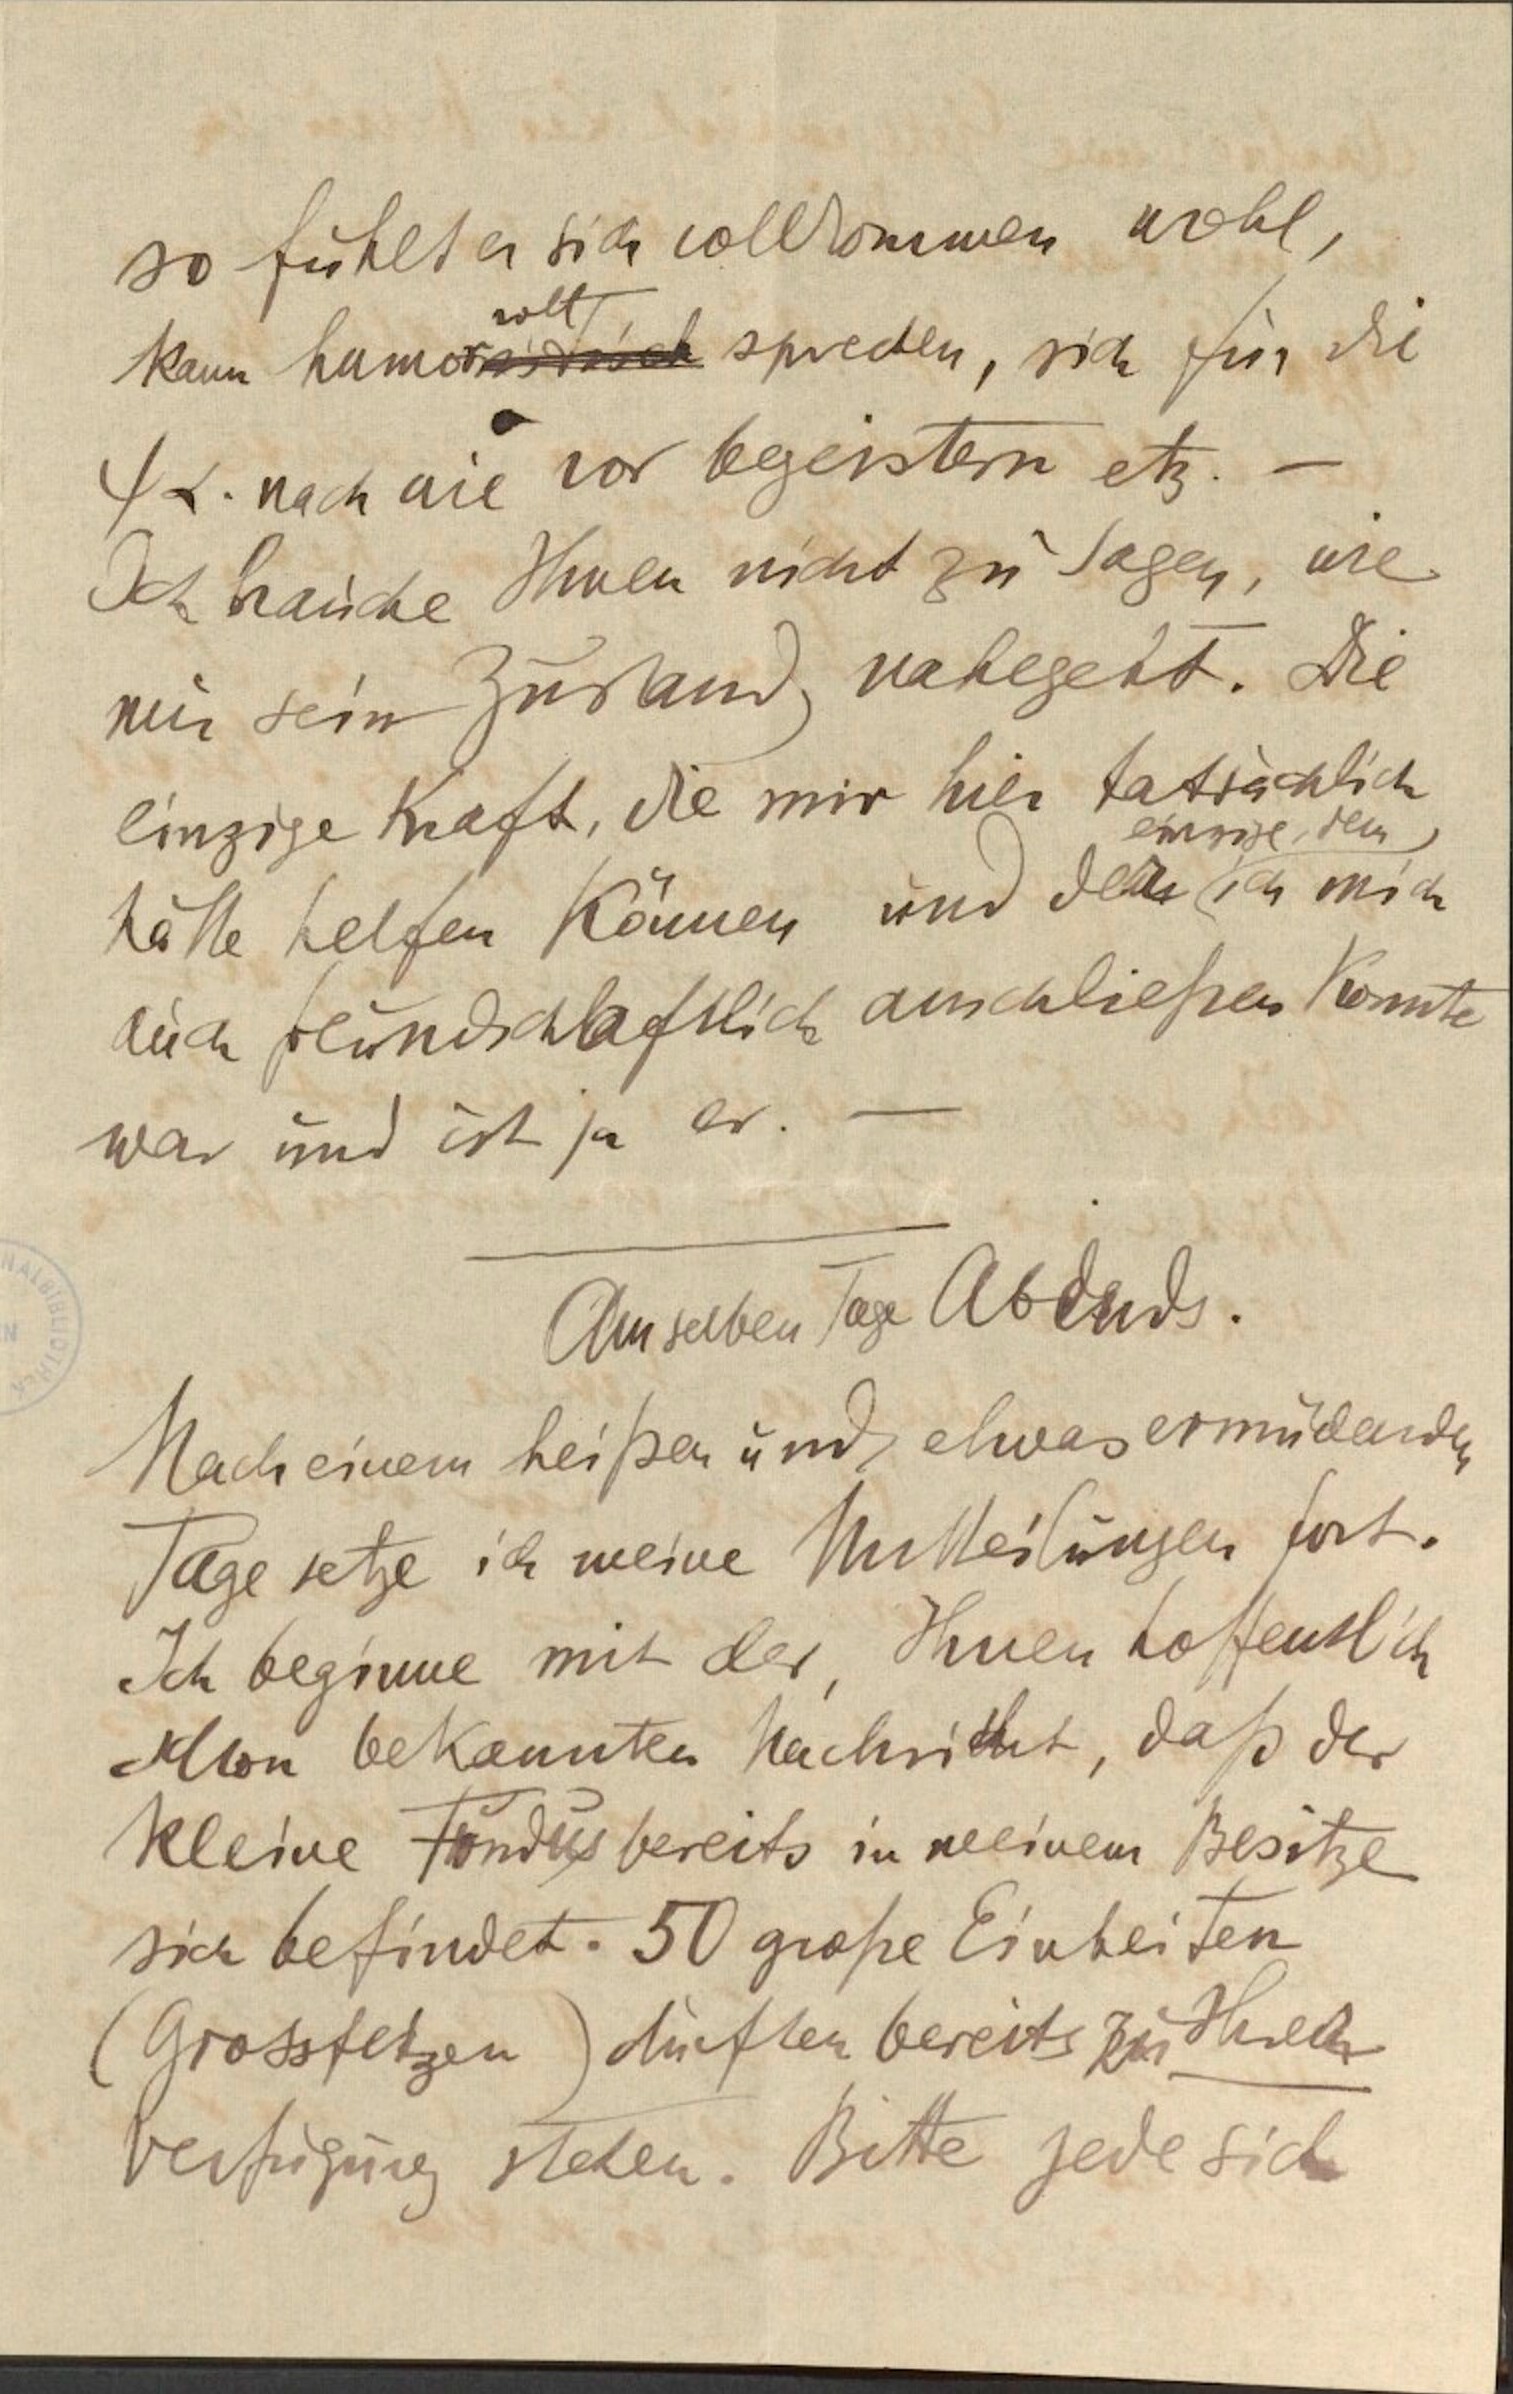 so fühlt er sich vollkommen wohl,
kann humoristisch voll sprechen, sich für die
ψα. nach wie vor begeistern etz. —
Ich brauche Ihnen nicht zu sagen, wie
mir sein Zustand nahegeht. Die
einzige Kraft, die mir hier tatsächlich
hätte helfen können und der einzige, dem ich mich
auch freundschaftlich anschließen konnte
war und ist ja er. —
Am selben Tage Abends.
Nach einem heißen und etwas ermüdenden
Tage setze ich meine Mitteilungen fort.
Ich beginne mit der, Ihnen hoffentlich
schon bekannten Nachricht, daß der
kleine Fundus bereits in meinem Besitze
sich befindet. 50 große Einheiten
(Grossfetzen) dürften bereits zu Ihrer
Verfügung stehen. Bitte jede sich